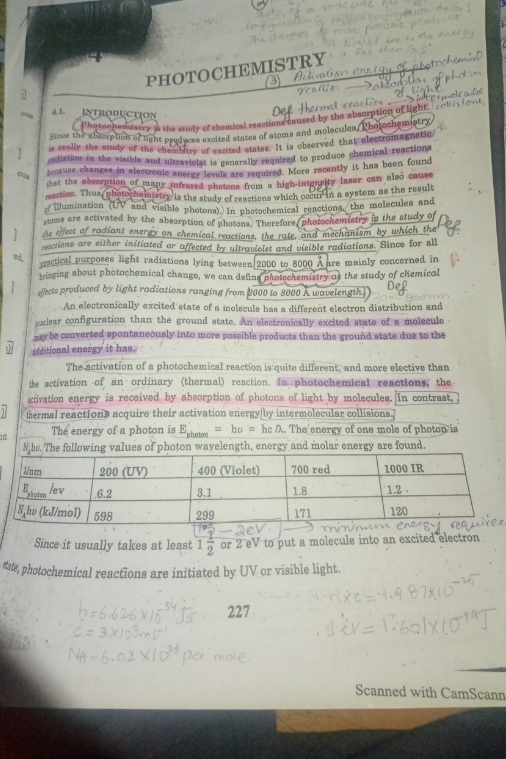 4
PHOTOCHEMISTRY
(3) Activation energy of photochemical
reaction → absorption of photon
of light
Def thermal reaction → intermolecular
collisions
4.1. INTRODUCTION
Photochemistry is the study of chemical reactions caused by the absorption of light.
Since the absorption of light produces excited states of atoms and molecules, Photochemistry
is really the study of the chemistry of excited states. It is observed that electromagnetic
radiation in the visible and ultraviolet is generally required to produce chemical reactions
because changes in electronic energy levels are required. More recently it has been found
that the absorption of many infrared photons from a high-intensity laser can also cause
reaction. Thus photochemistry is the study of reactions which occur in a system as the result
Def
of illumination (UV and visible photons). In photochemical reactions, the molecules and
atoms are activated by the absorption of photons. Therefore photochemistry is the study of
the effect of radiant energy on chemical reactions, the rate, and mechanism by which the
Def
reactions are either initiated or affected by ultraviolet and visible radiations. Since for all
practical purposes light radiations lying between 2000 to 8000 Å are mainly concerned in
bringing about photochemical change, we can define photochemistry as the study of chemical
effects produced by light radiations ranging from (2000 to 8000 Å wavelength.)
Def
An electronically excited state of a molecule has a different electron distribution and
nuclear configuration than the ground state. An electronically excited state of a molecule
may be converted spontaneously into more possible products than the ground state due to the
additional energy it has.
The activation of a photochemical reaction is quite different, and more elective than
the activation of an ordinary (thermal) reaction. In photochemical reactions, the
activation energy is received by absorption of photons of light by molecules. In contrast,
thermal reactions acquire their activation energy by intermolecular collisions.
The energy of a photon is E photon = hυ = hc/λ. The energy of one mole of photon is
N A hυ. The following values of photon wavelength, energy and molar energy are found.
λ/nm 200 (UV) 400 (Violet) 700 red 1000 IR
E photon /ev 6.2 3.1 1.8 1.2
N A hυ (kJ/mol) 598 299 171 120
1 1/2 - 2eV → minimum energy require
Since it usually takes at least 1 1/2 or 2 eV to put a molecule into an excited electron
state, photochemical reactions are initiated by UV or visible light.
227
h = 6.626 X 10^-34 Js
NA = 6.02 X 10^23 per mole
1 ev = 1.601 X 10^-19 J
Scanned with CamScann